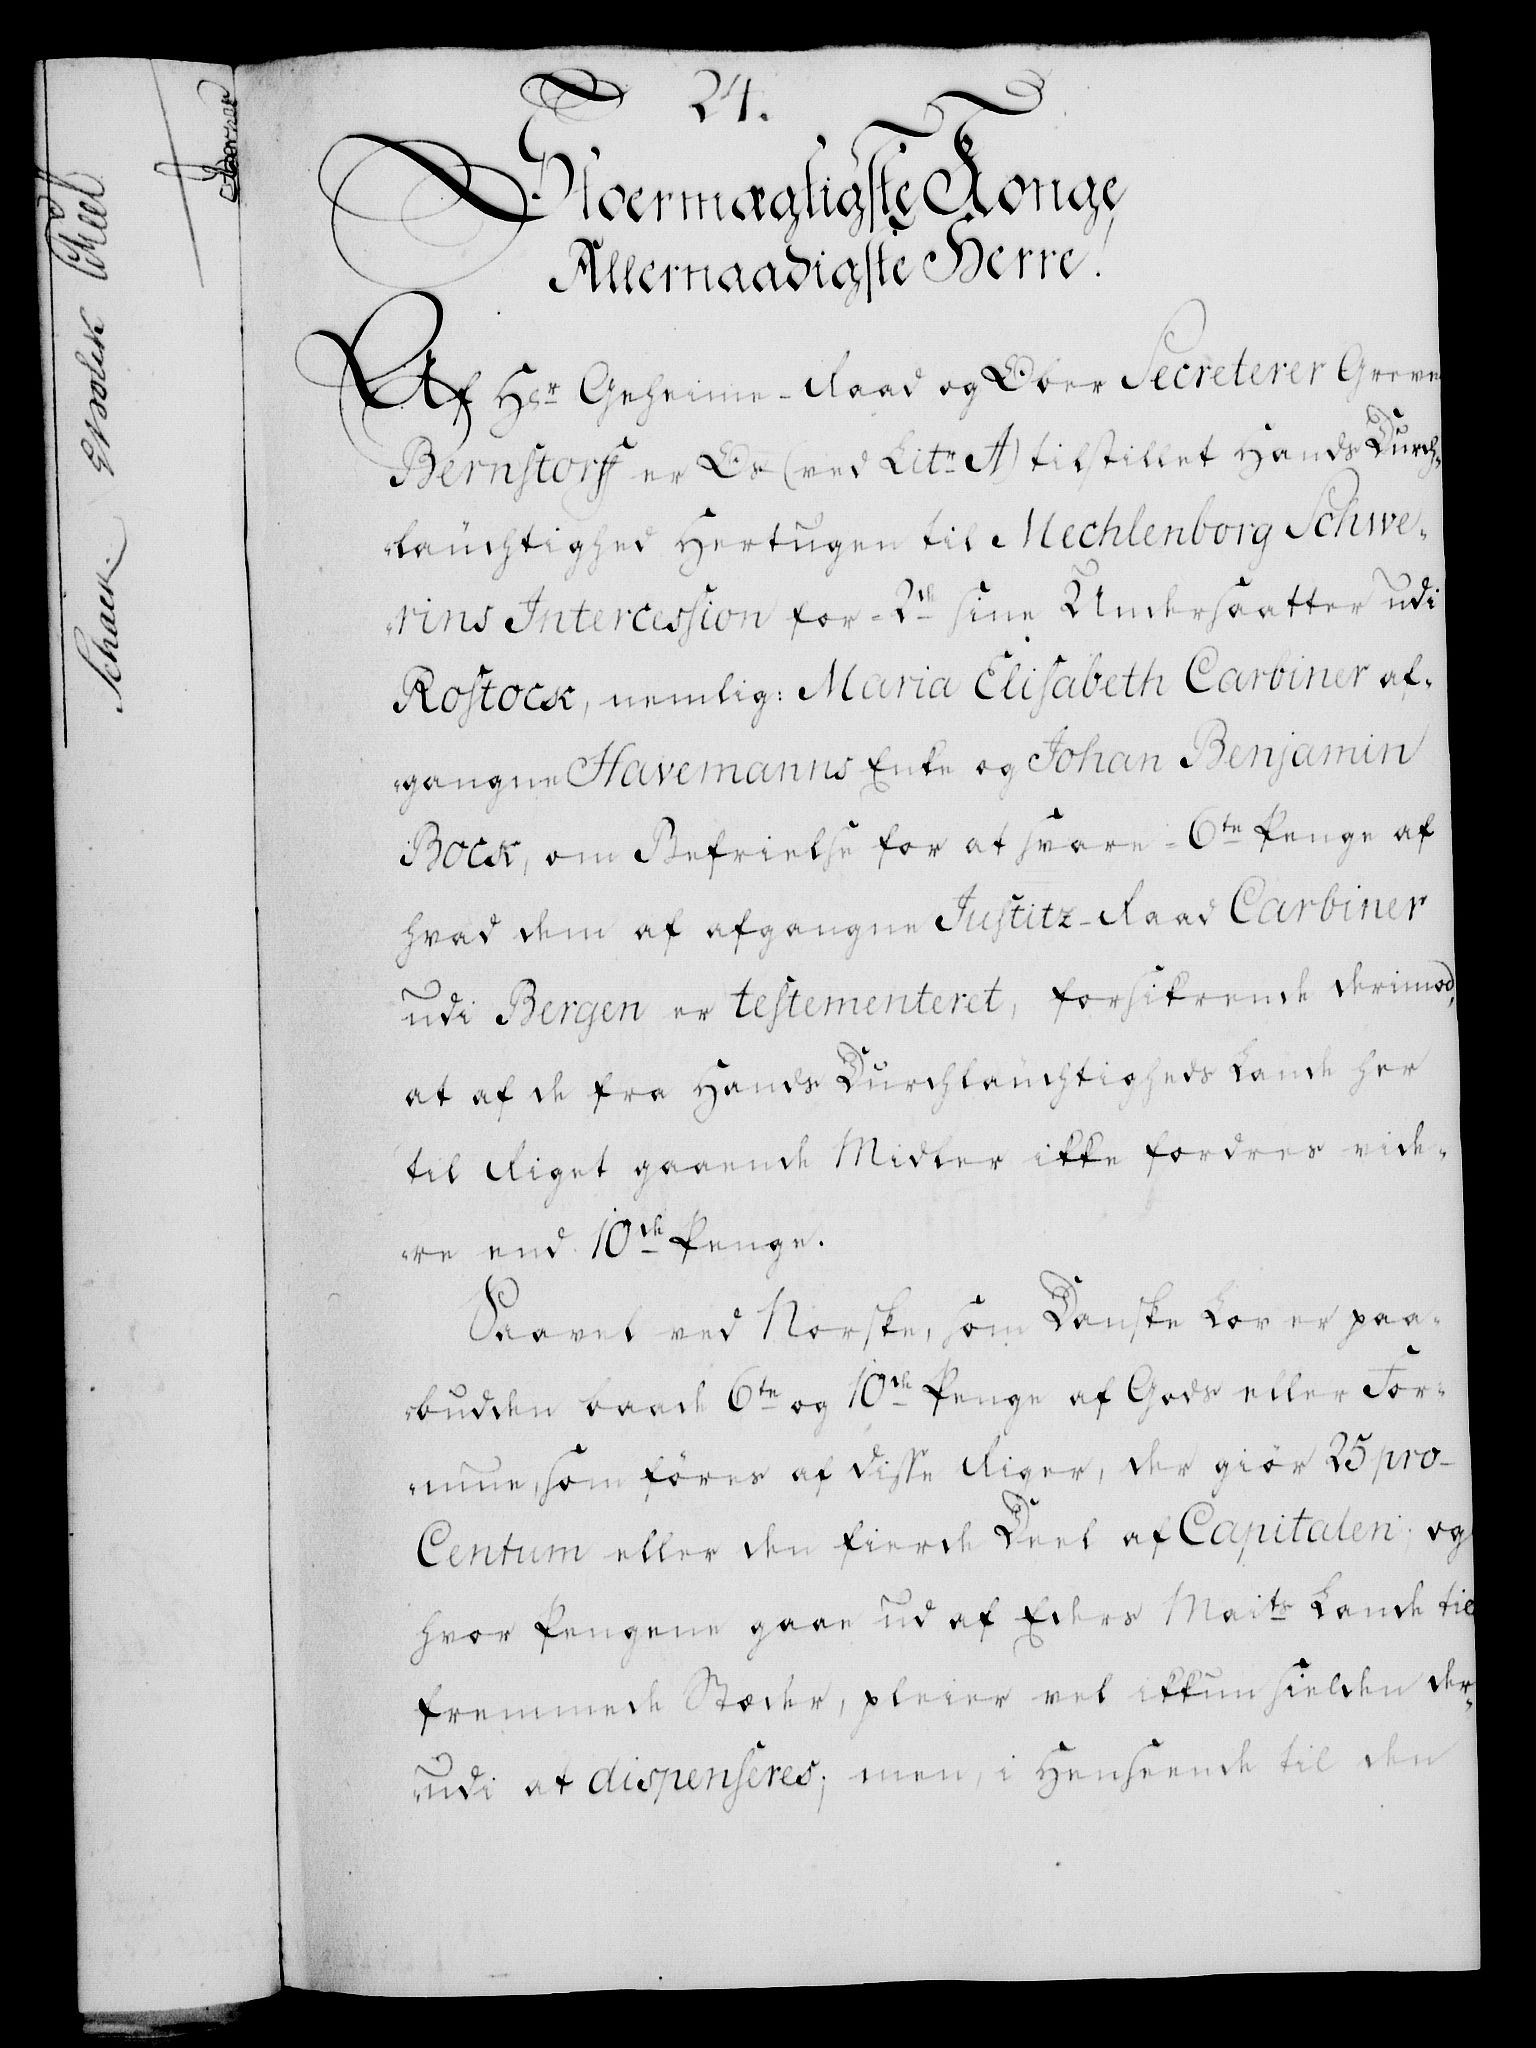 24.
Stormægtigste Konge,
Allernaadigste Herre!
Af Hr Geheime-Raad og Ober Secreterer Greve
Bernstorff er Os (ved Litr A) tilstillet Hands Durch-
-laüchtighed Hertugen til Mechlenborg Schwe-
-rins Intercession for 2de sine Undersaatter udi
Rostock, nemlig: Maria Elisabeth Carbiner af-
-gangne Havemanns Enke og Johan Benjamin
Bock, om Befrielse for at svare 6te Penge af
hvad dem af afgangne Justitz-Raad Carbiner
udi Bergen er testementeret, forsikrende derimod,
at af de fra Hands Durchlaüchtigheds Lande her
til Riget gaaende Midler ikke fordres vide-
-re end 10de Penge.
Saavel ved Norske, som Danske Lov er paa-
-budden baade 6te og 10de Penge af Gods eller For-
-mue, som föres af disse Riger, der giör 25 pro-
Centum eller den fierde Deel af Capitalen; og
hvor Pengene gaae ud af Eders Maits Lande til
fremmede Stæder, pleier vel ikkun sielden der-
-udi at dispenseres; men, i Henseende til den
Schack
Theel